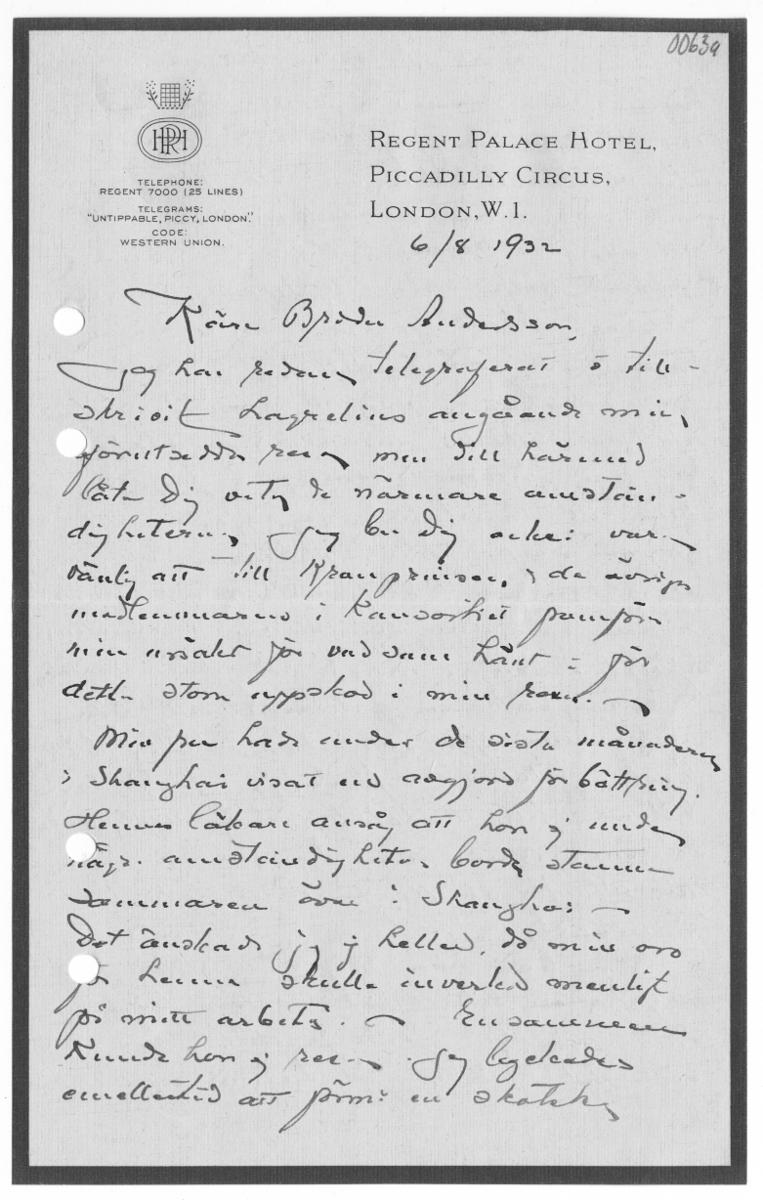 0063a
HRPH
TELEPHONE:
REGENT 7000 (25 LINES)
TELEGRAMS:
"UNTIPPABLE, PICCY, LONDON."
CODE:
WESTERN UNION.
REGENT PALACE HOTEL,
PICCADILLY CIRCUS,
LONDON, W.1.
6/8 1932
Käre Broder Andersson,
Jag har redan telegraferat o till-
skrivit Lagrelius angående min
förutsedda resa men vill härmed
låta Dig veta de närmare omstän-
digheterna. Jag ber Dig också vara
vänlig att till Kronprinsen, o de övriga
medlemmarna i Konsortiet framföra
min ursäkt för vad som hänt o för
detta stora uppskov i min resa. —
Min fru hade under de sista månaderna
i Shanghai visat en avgjord förbättring.
Hennes läkare ansåg att hon ej under
några omständigheter borde stanna
sommaren över i Shanghai —
Det önskade jag ej heller, då min oro
för henne skulle inverka menligt
på mitt arbete. — Ensammen
kunde hon ej resa. Jag lyckades
emellertid att förmå en skotska